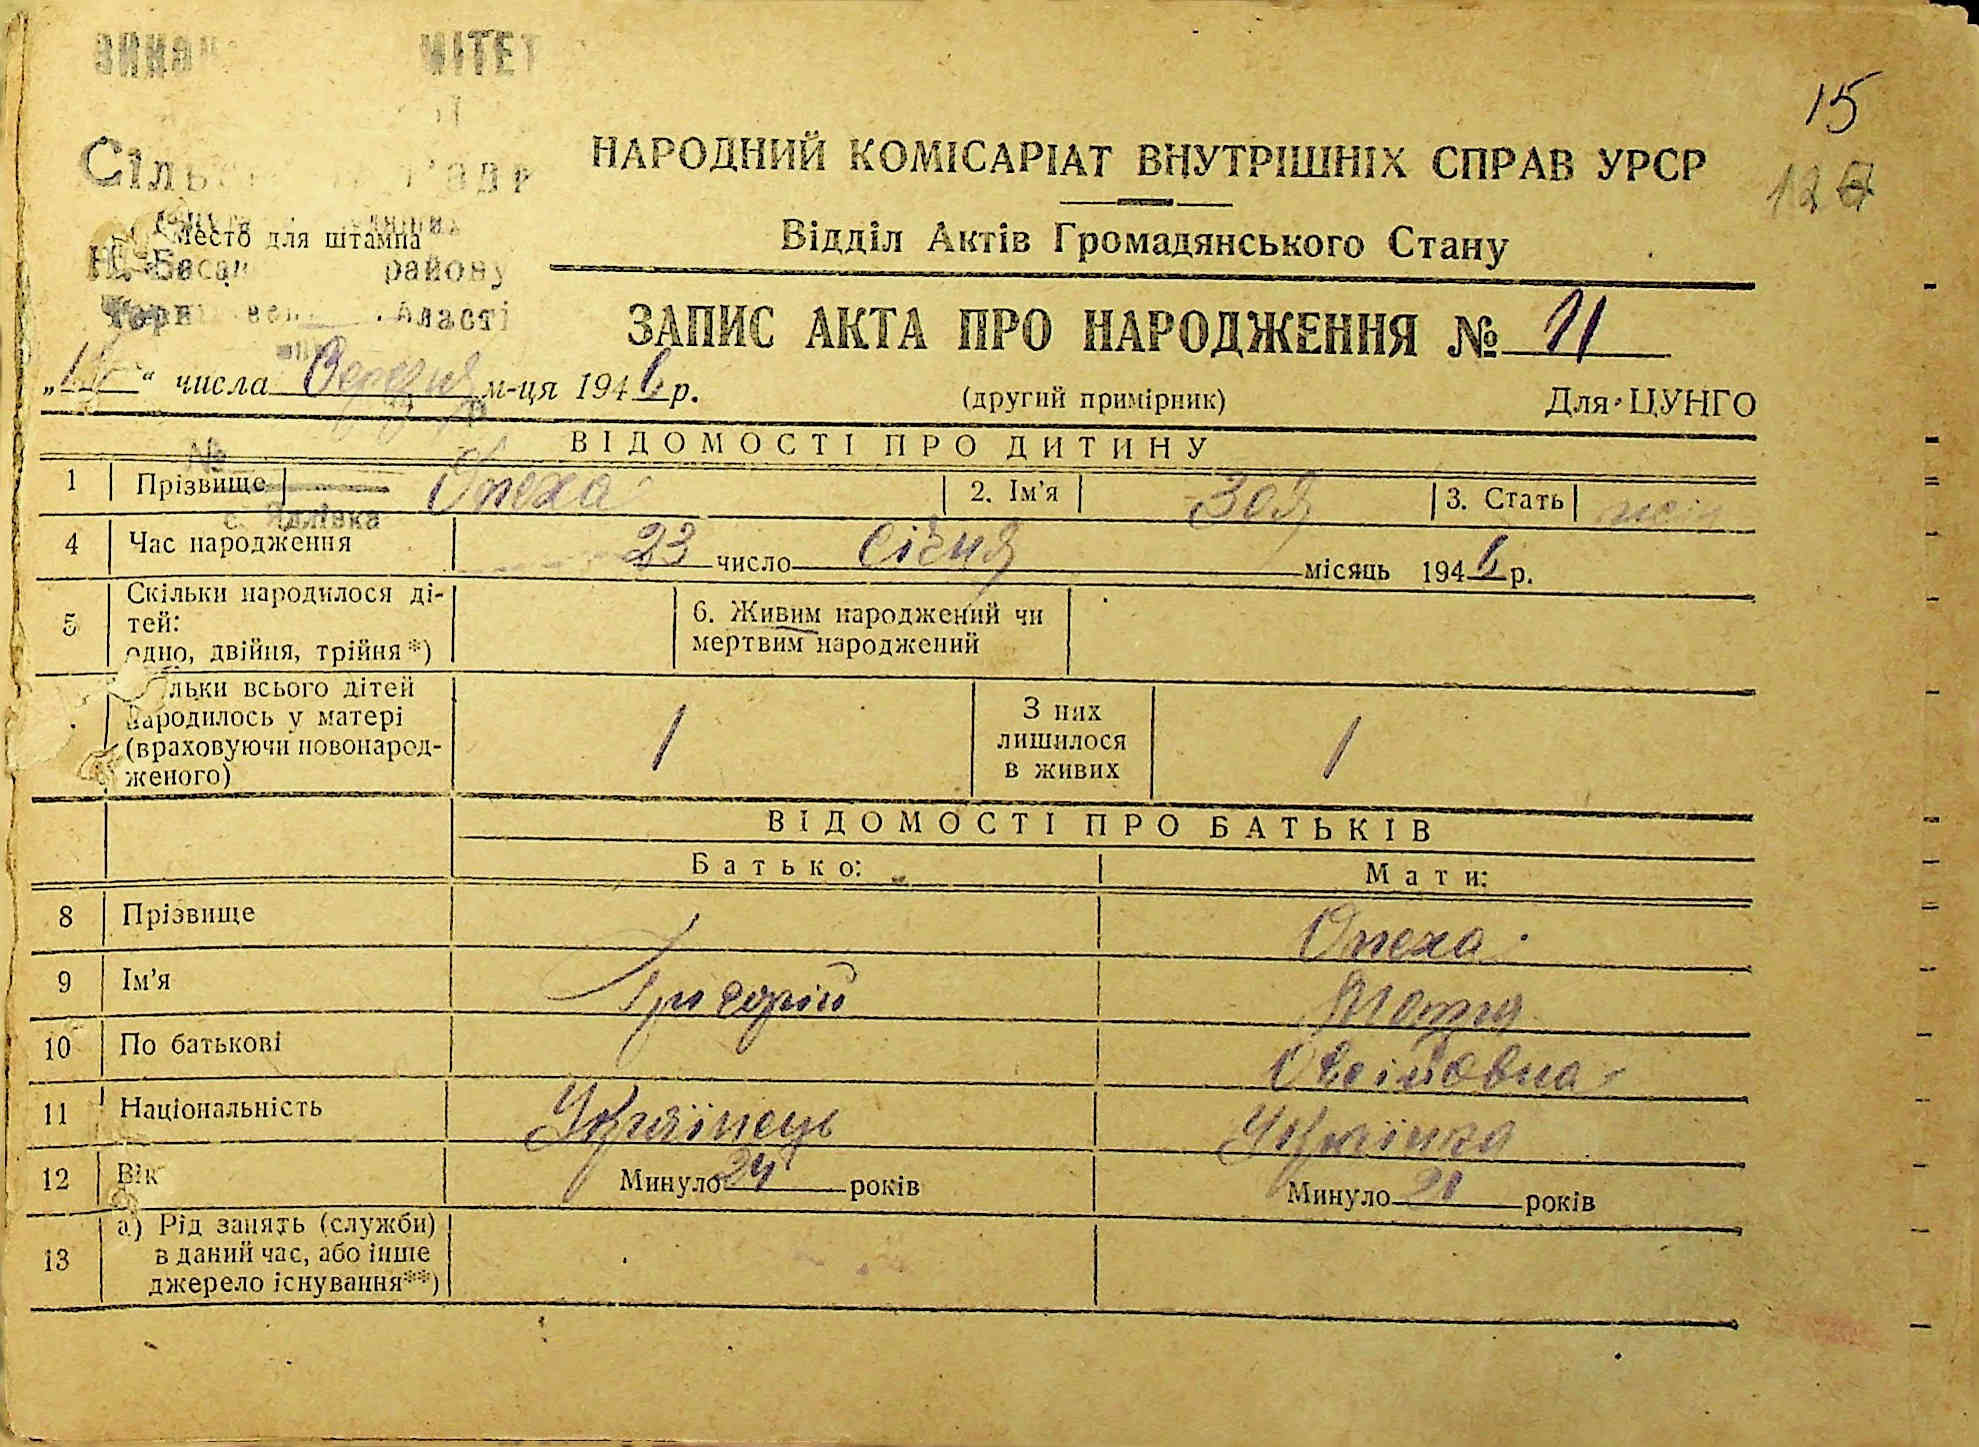 15
НАРОДНИЙ КОМІСАРІАТ ВНУТРІШНІХ СПРАВ УРСР
Відділ Актів Громадянського Стану
Место для штампа
району
с. Ядлівка
ЗАПИС АКТА ПРО НАРОДЖЕННЯ № 11
" " числа Березня м-ця 194 р.
(другий примірник)
Для ЦУНГО
ВІДОМОСТІ ПРО ДИТИНУ
1 Прізвище Опеха 2. Ім'я Зоя 3. Стать
4 Час народження 23 число Січня місяць 194 р.
5 Скільки народилося ді-
тей:
одно, двійня, трійня*)
6. Живим народжений чи
мертвим народжений
льки всього дітей
народилось у матері
(враховуючи новонарод-
женого)
1
З них
лишилося
в живих
1
ВІДОМОСТІ ПРО БАТЬКІВ
Батько: Мати:
8 Прізвище Опеха
9 Ім'я Григорій Мотря
10 По батькові
11 Національність Українець Українка
12 Вік Минуло 24 років Минуло 21 років
13 а) Рід занять (служби)
в даний час, або інше
джерело існування**)